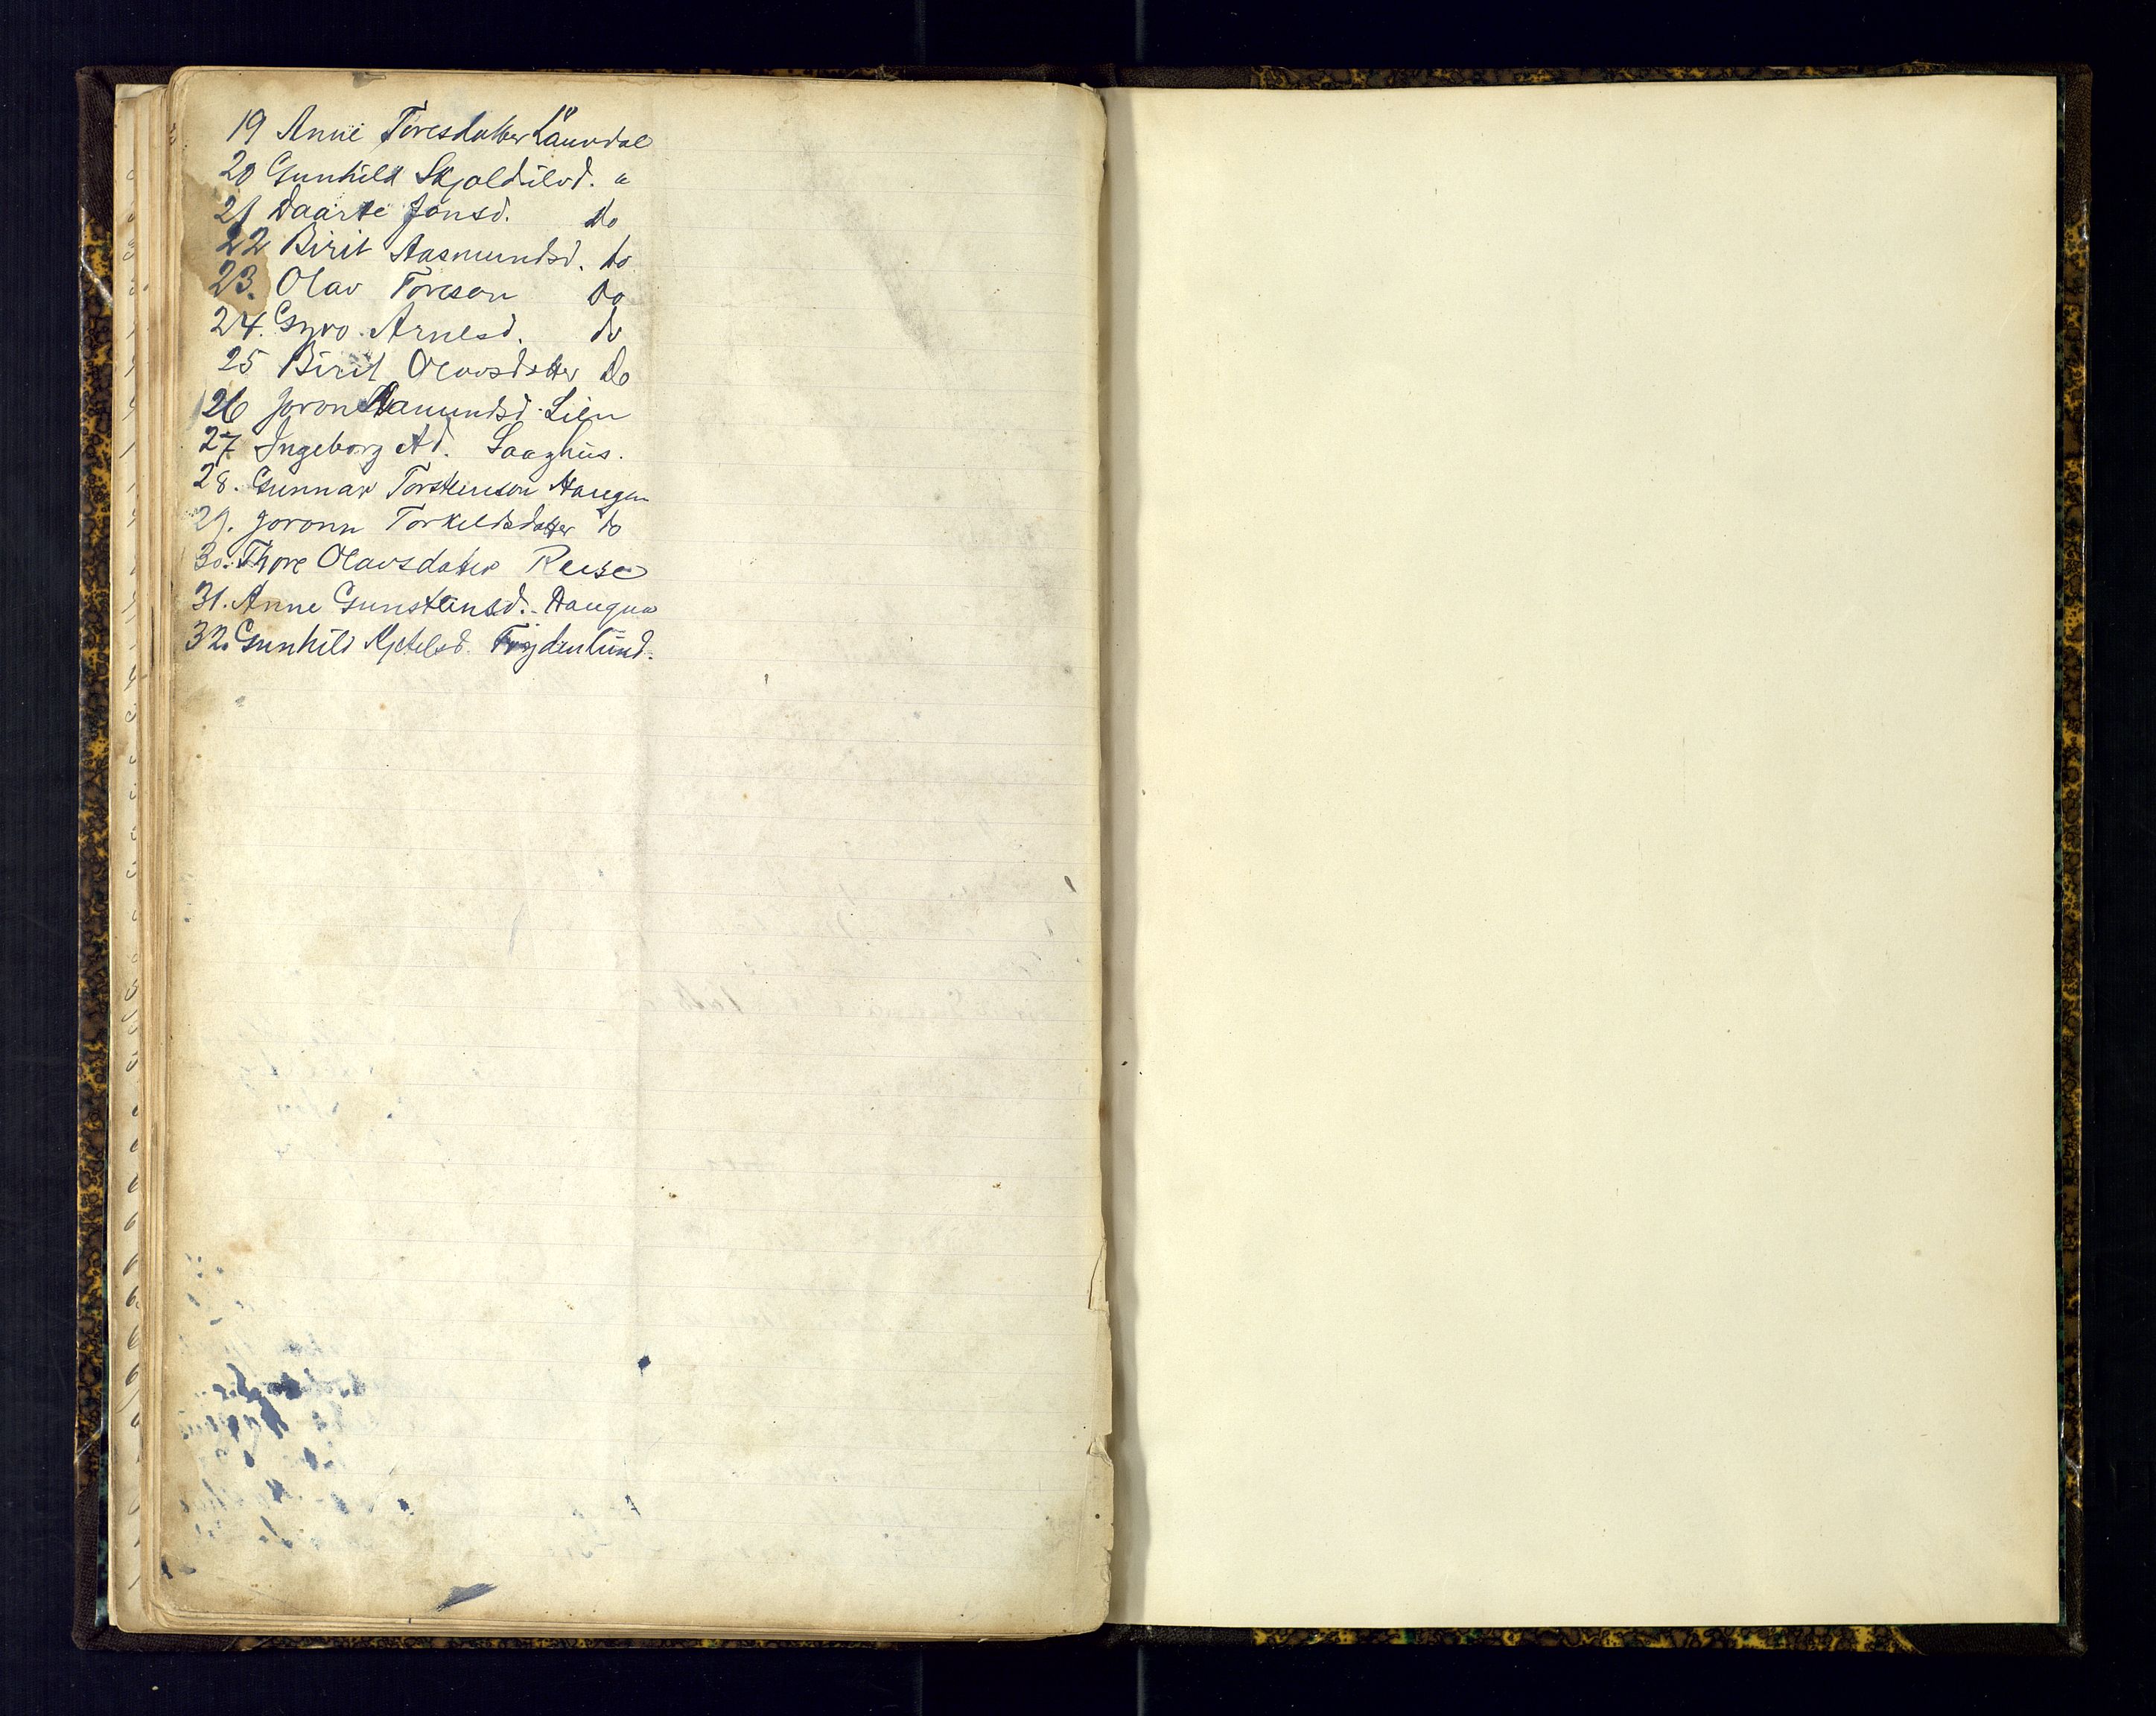 19 Anne Toresdatter Laurdal
20 Gunhild Skjoldulvd. "
21 Daarte Jonsd. do
22 Birit Aasmundsd. do
23. Olav Toreson do
24. Gyro Arnesd. do
25 Birit Olavsdatter do
26 Joron Aamundsd. Lien
27 Ingeborg Ad. Saaghus.
28. Gunnar Torsteinson Haugen
29. Joronn Torkeldsdatter do
30. Thore Olavsdater
31. Anne Gunsteinsd. Haugen
32. Gunhild Kjetelsd.